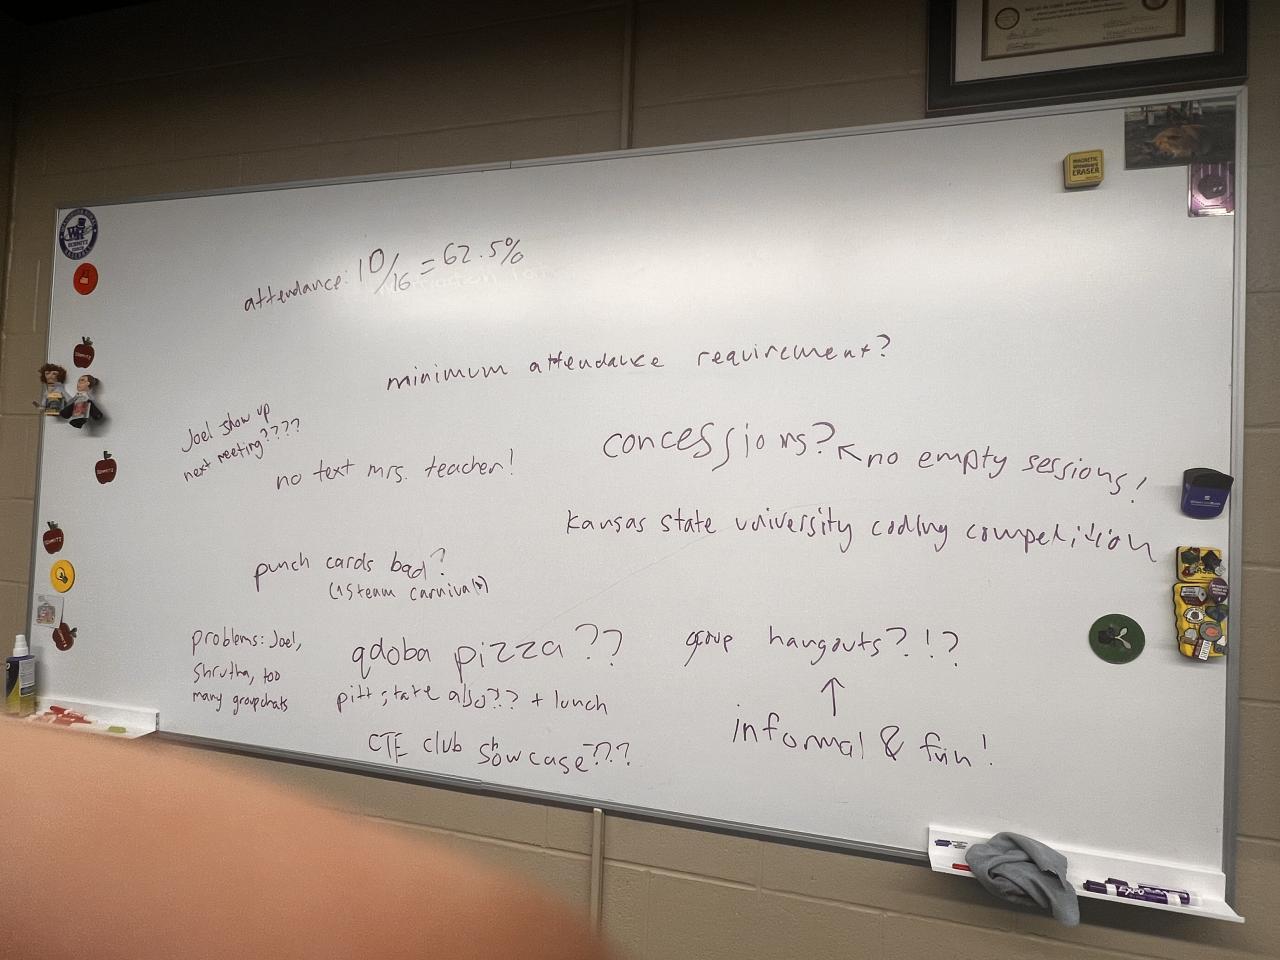 attendance: 10/16 = 62.5%
minimum attendance requirement?
Joel show up
next meeting????
no text mrs. teacher!
concessions? ↖ no empty sessions!
Kansas state university coding competition
punch cards bad?
(↳ steam carnival)
problems: Joel,
Shrutha, too
many groupchats
qdoba pizza ??
pitt state also?? + lunch
CTE club showcase???
group hangouts?!?
↑
informal & fun!
MAGNETIC
Whiteboard
ERASER
SCHMITZ
EXPO